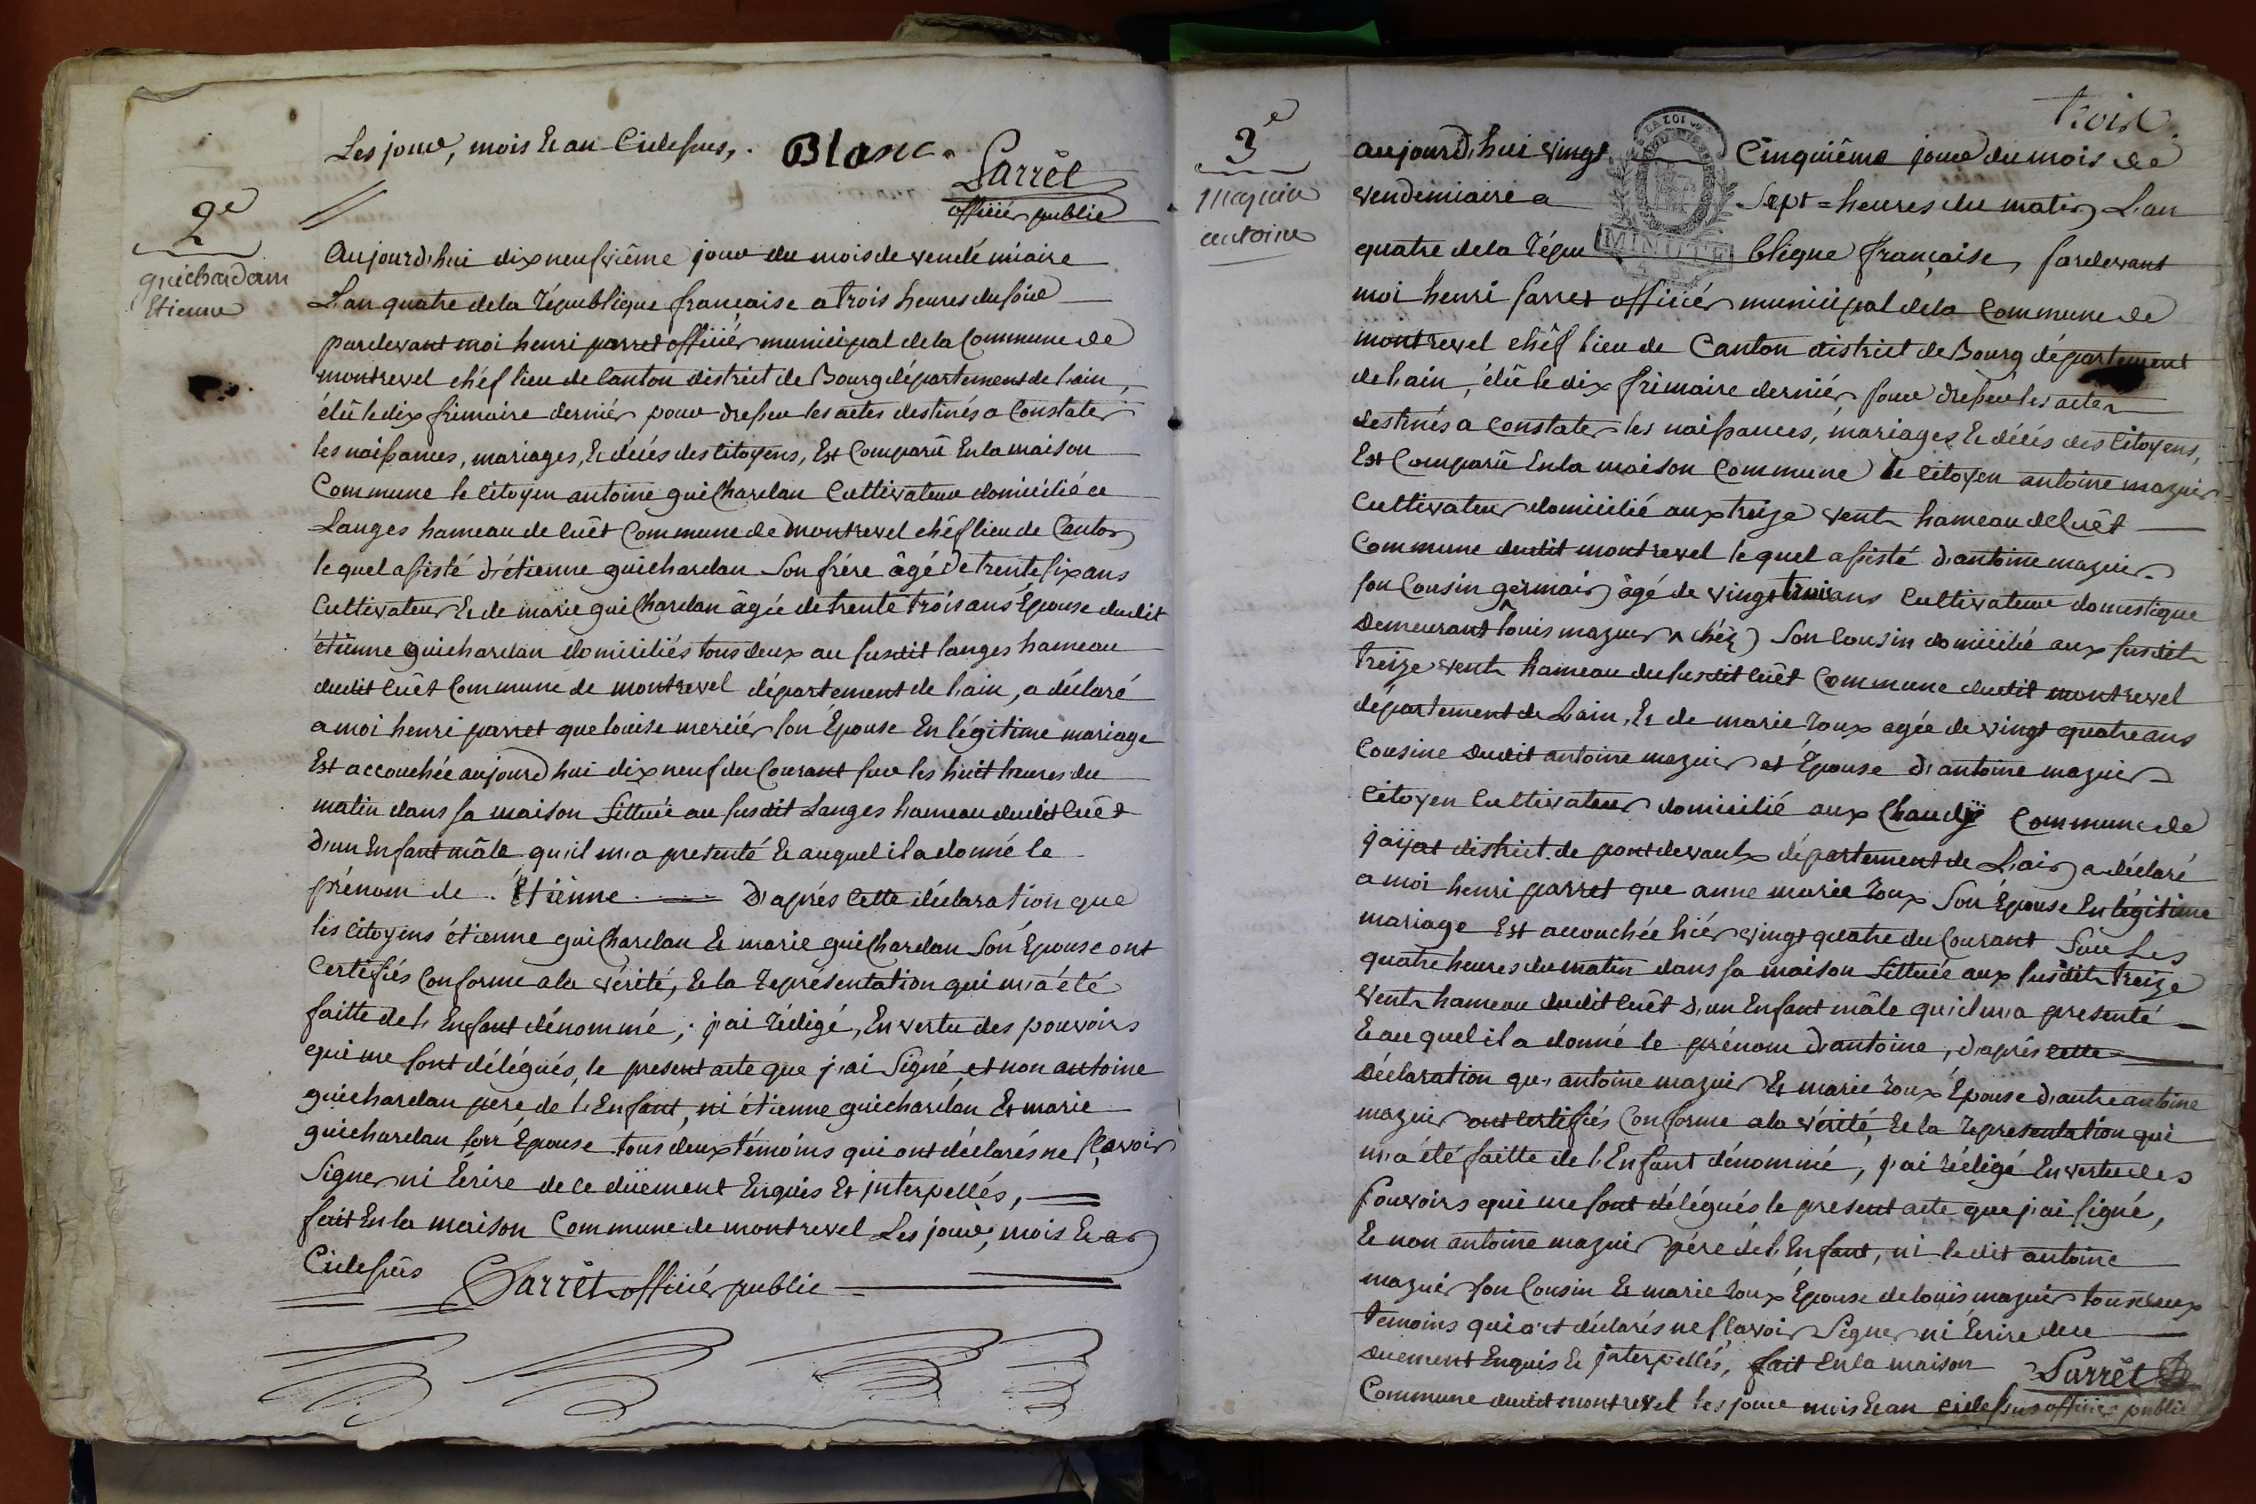 Les jour, mois & an Cidessus,. Blanc.
Parrêt
officiér public
2e
guichardan
Etienne
Aujourd'hui dix neufviême jour du mois de vendémiaire
L'an quatre de la République française a trois heures du soir
pardevant moi henri parret officiér municipal de la Commune de
montrevel chéf lieu de Canton district de Bourg département de l'ain,
élû le dix frimaire derniér pour dresser les actes destinés a Constater
les naissances, mariages, & décés des Citoyens, Est Comparû En la maison
Commune le Citoyen antoine guiChardan Cultivateur domicilié a
Langes hameau de Cuêt Commune de montrevel chéf lieu de Canton
le quel assisté d'étienne guichardan Son frére âgé de trente six ans
Cultivateur & de marie guiChardan âgée de trente trois ans Epouse dudit
étienne guichardan domiciliés tous deux au susdit langes hameau
dudit Cuêt Commune de montrevel département de l'ain, a déclaré
a moi henri parret que louise merciér son Épouse En légitime mariage
Est accouchée aujourd'hui dix neuf du Courant sur les huit heures du
matin dans sa maison Sittuée au susdit Langes hameau dudit Cuêt
D'un Enfant mâle qu'il m'a presenté & auquel il a donné le
prénom de . Étienne. D'aprés Cette déclaration que
les Citoyens étienne guiChardan & marie guiChardan Son Epouse ont
Certifiés Conforme a la vérité, & la Représentation qui m'a été
faitte de l'Enfant dénommé, j'ai rédigé, En vertu des pouvoirs
qui me sont délégués, le present acte que j'ai Signé, et non antoine
guichardan pere de l'Enfant, ni étienne guichardan Et marie
guichardan son Épouse tous deux témoins qui ont déclarés ne sçavoir
Signer ni Écrire de ce düement Enquis Et interpellés,
fait En la maison Commune de montrevel Les jour, mois & an
Cidessus Parrêt officiér public
trois
3e
mazuir
antoine
LA LOI
MINUTE
aujourd'hui vingt Cinquiême jour du mois de
vendemiaire a Sept = heures du matin L'an
quatre de la Répu blique française, pardevant
moi henri parret officiér municipal de la Commune de
montrevel chêf lieu de Canton district de Bourg département
de l'ain, élû le dix frimaire derniér pour dresser les actes
destinés a Constater les naissances, mariages & décés des Citoyens,
Est Comparû En la maison Commune le Citoyen antoine mazuir
Cultivateur domicilié aux treize vents hameau de Cuêt
Commune dudit montrevel le quel assisté d'antoine mazuir
son Cousin germain âgé de vingt trois ans Cultivateur domestique
Demeurant louis mazuir ^ chéz) Son Cousin domicilié aux susdits
treize vents hameau du susdit Cuêt Commune dudit montrevel
département de L'ain, & de marie Roux agée de vingt quatre ans
Cousine dudit antoine mazuir et Épouse d'antoine mazuir
Citoyen Cultivateur domicilié aux Commune de
jaijat district de pontdevaux département de L'ain a déclaré
a moi henri parret que anne marie Roux Son Épouse En légitime
mariage Est accouchée hiér vingt quatre du Courant Sur Les
quatre heures du matin dans sa maison Sittuée aux susdits treize
vents hameau dudit Cuêt D'un Enfant mâle qu'il m'a presenté
& au quel il a donné le prénom d'antoine, d'aprês cette
Déclaration qu'antoine mazuir & marie Roux Épouse d'autre antoine
mazuir ont certifiés Conforme a la vérité, & la Representation qui
m'a été faitte de l'Enfant dénommé, j'ai rédigé En vertu des
Pouvoirs qui me sont délégués le present acte que j'ai signé,
& non antoine mazuir pére de l'Enfant, ni le dit antoine
mazuir son Cousin & marie Roux Épouse de louis mazuir tous deux
temoins qui ont déclarés ne sçavoir Signer ni Écrire de ce
Duement Enquis & interpellés, fait En la maison Parrêt
Commune dudit montrevel les jour mois & an cidessus officiér public